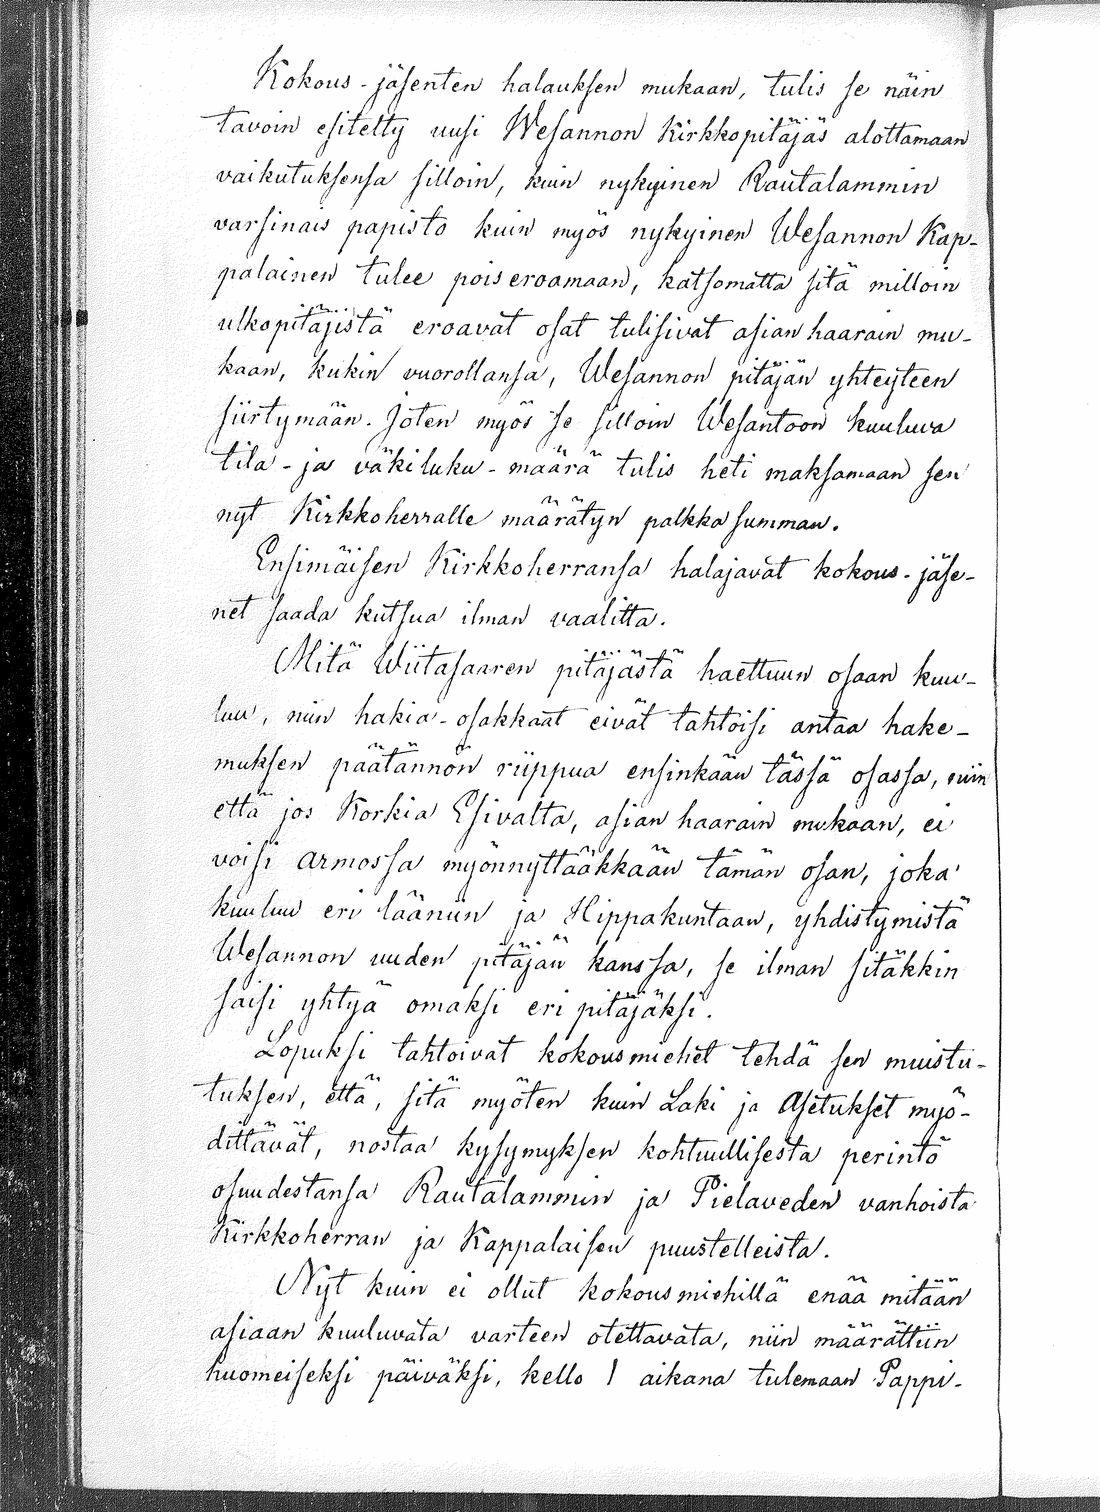 Kokous-jäsenten halauksen mukaan, tulis se näin
tavoin esitetty uusi Wesannon Kirkkopitäjäs alottamaan
vaikutuksensa silloin, kuin nykyinen Rautalammin
varsinais papisto kuin myös nykyinen Wesannon Kap-
palainen tulee pois eroamaan, katsomatta sitä milloin
ulkopitäjistä eroavat osat tulisivat asianhaarain mu-
kaan, kukin vuorollansa, Wesannon pitäjän yhteyteen
siirtymään. Joten myös se silloin Wesantoon kuuluva
tila- ja väkiluku-määrä tulis heti maksamaan sen
nyt Kirkkoherralle määrätyn palkka summan.
Ensimäisen Kirkkoherransa halajavat kokous-jäse-
net saada kutsua ilman vaalitta.
Mitä Wiitasaaren pitäjästä haettuun osaan kuu-
luu, niin hakia-osakkaat eivät tahtoisi antaa hake-
muksen päätännön riippua ensinkään tässä osassa, niin
että jos Korkia Esivalta, asian haarain mukaan, ei
voisi armossa myönnyttääkkään tämän osan, joka
kuuluu eri lääniin ja Hippakuntaan, yhdistymistä
Wesannon uuden pitäjän kanssa, se ilman sitäkkin
saisi yhtyä omaksi eri pitäjäksi.
Lopuksi tahtoivat kokousmiehet tehdä sen muistu-
tuksen, että, sitä myöten kuin Laki ja Asetukset myö-
dittävät, nostaa kysymyksen kohtuullisesta perintö
osuudestansa Rautalammin ja Pielaveden vanhoista
Kirkkoherran ja Kappalaisen puustelleista.
Nyt kuin ei ollut kokousmiehillä enää mitään
asiaan kuuluvata varteen otettavata, niin määrättiin
huomeiseksi päiväksi, kello 1 aikana tulemaan Pappi-